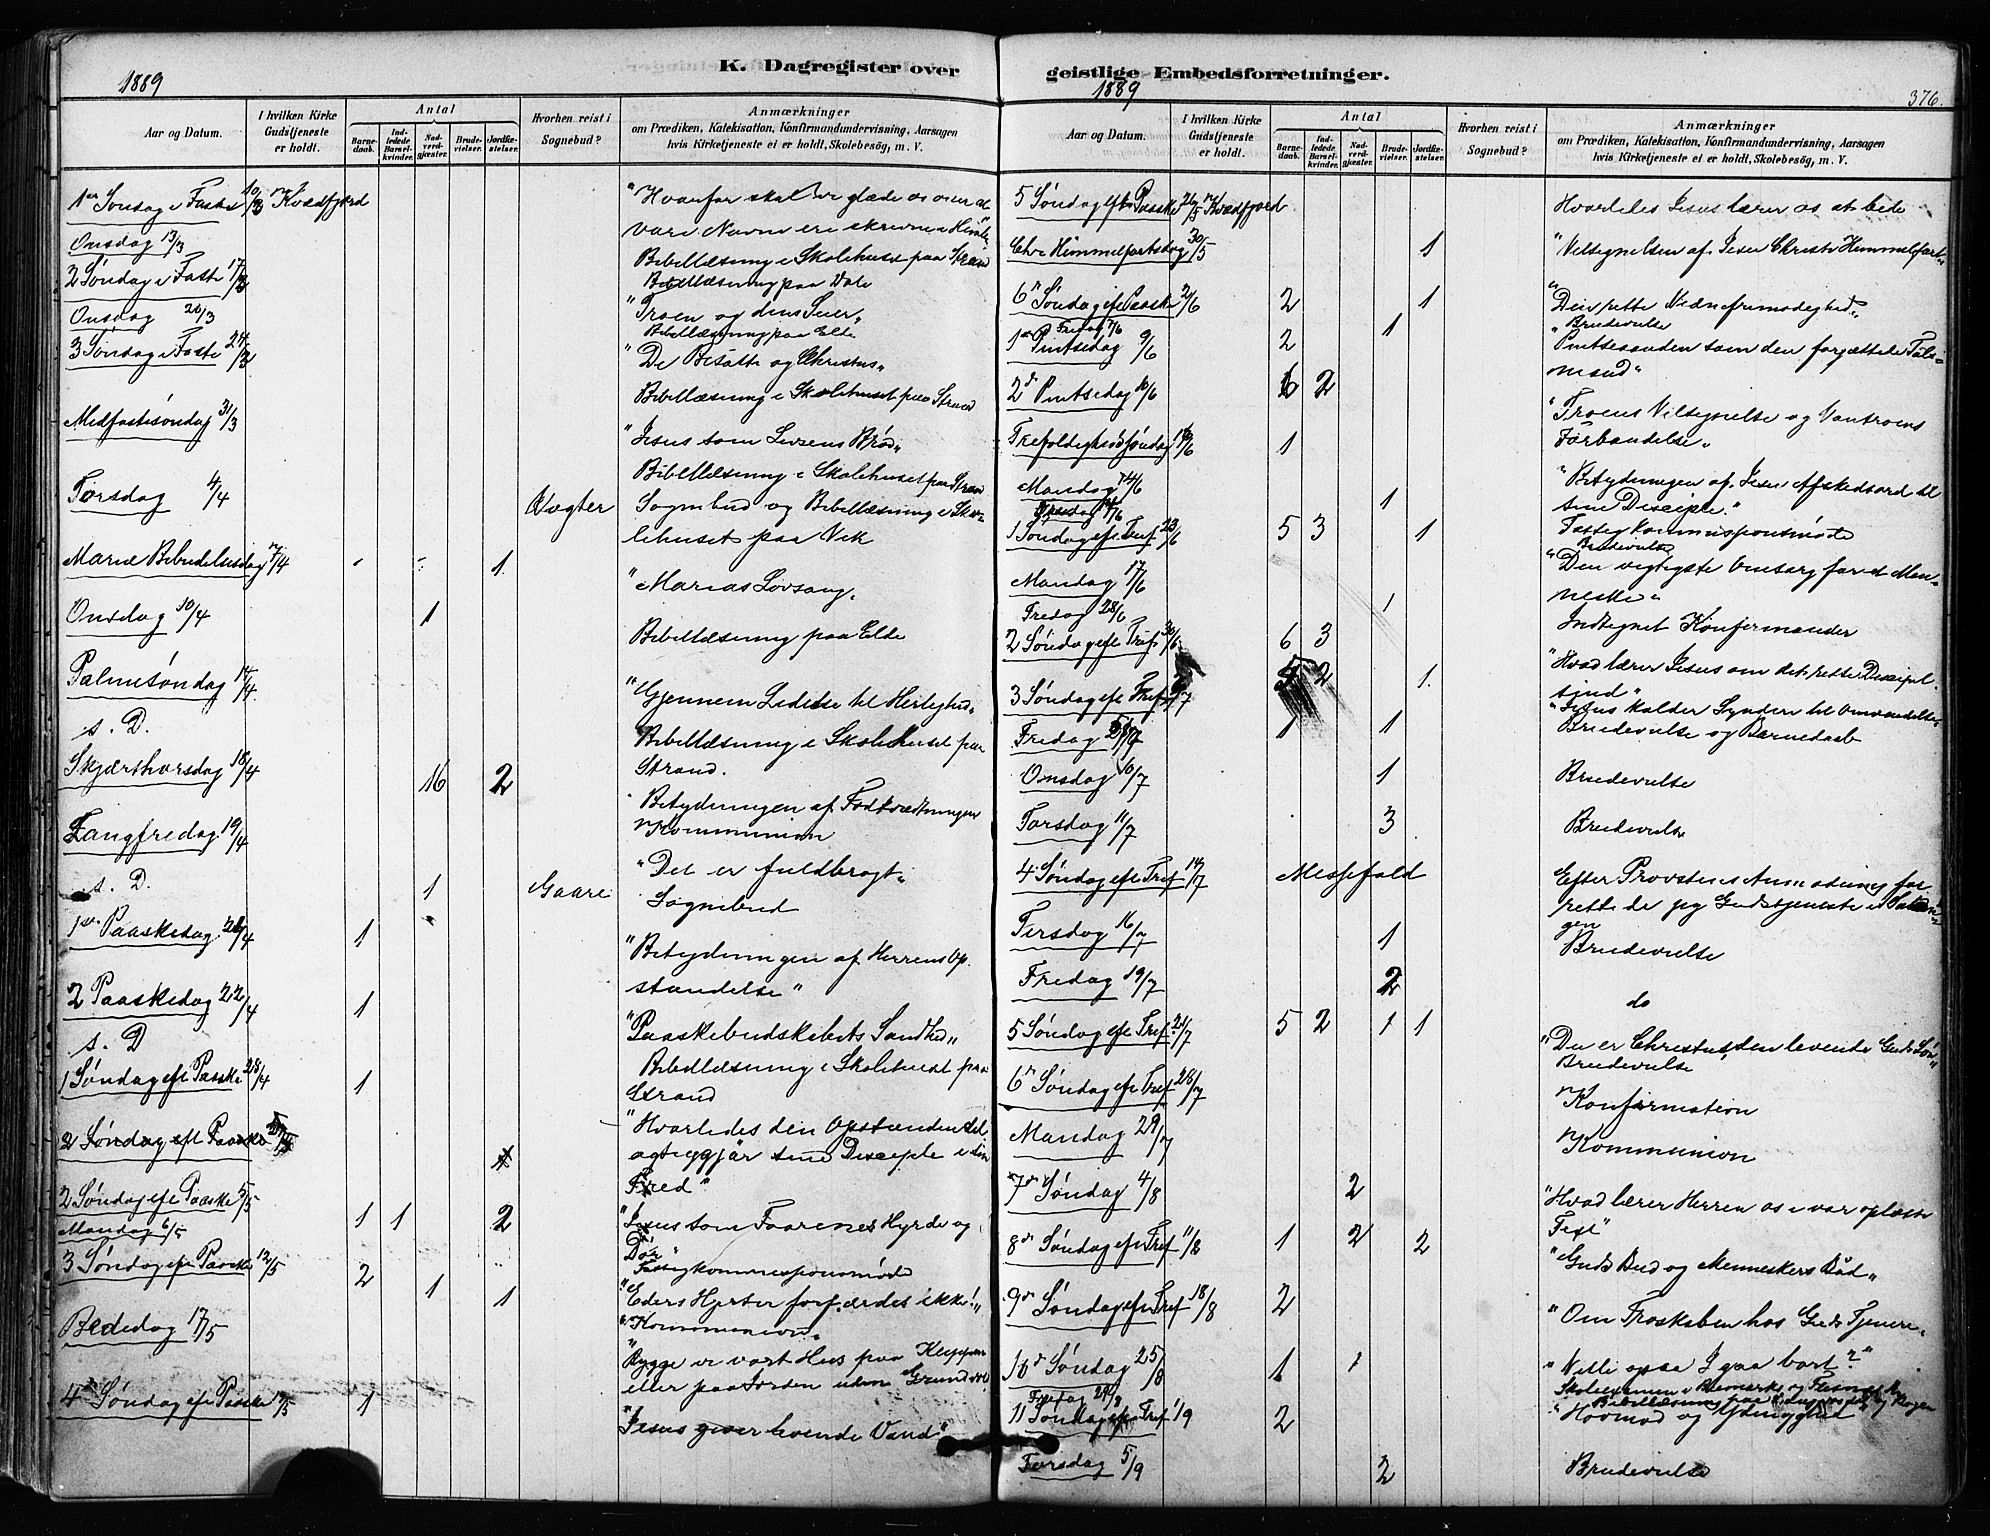 K. Dagregister over
1889
Aar og Datum.
I hvilken Kirke Gudstjeneste er holdt.
Antal
Barnedaab.
Indledede Barselkvinder.
Nadverdgjæster.
Brudevielser.
Jordfæstelser.
Hvorhen reist i Sognebud?
Anmærkninger
om Prædiken, Katekisation, Konfirmandundervisning, Aarsagen
hvis Kirketjeneste ei er holdt, Skolebesøg, m. V.
1ste Søndag i Faste 10/3 Kvædfjord "Hvorfor skal vi glæde os over at
vare Navne ere skrevne i Himle"
Onsdag 13/3 Bibellæsning i Skolehuset paa Strand
2 Søndag i Faste 17/3 Bibellæsning paa Vole
"Troen og dens Seier"
Onsdag 20/3 Bibellæsning paa Elde
3 Søndag i Faste 24/3 "De Besatte og Christus"
Bibellæsning i Skolehuset paa Strand
Midfastesøndag 31/3 "Jesus som Livsens Brød"
Bibellæsning i Skolehuset paa Strand
Torsdag 4/4 Sognebud og Bibellæsning i Sko-
lehuset paa Vik
Mariæ Bebudelsesdag 7/4 1 "Marias Lovsang"
Onsdag 10/4 1 Bibellæsning paa Elde
Palmesøndag 14/4 "Gjennem Lidelse til Herlighed"
s. D. Bibellæsning i Skolehuset paa
Strand.
Skjærthorsdag 18/4 16 2 Betydningen af Fodtvætningen
Kommunion
Langfredag 19/4 "Det er fuldbragt"
s. D. 1 Gaare Sognebud
1ste Paaskedag 21/4 1 "Betydningen af Herrens Op-
standelse"
2 Paaskedag 22/4 1 "Paaskebudskabets Sandhed"
s. D Bibellæsning i Skolehuset paa
Strand
1 Søndag eft Paaske 28/4 1 "Hvorledes den Opstandne
sine Disciple i sin
Fred"
2 Søndag eft Paaske
2 Søndag eft Paaske 5/5 1 1 2 "Jesus som Faarenes Hyrde og
Dør"
Mandag 6/5 Fattigkommissionsmøde
3 Søndag eft Paaske 12/5 2 1 1 "Eders Hjerter forfærdes ikke!"
Kommunion
Bededag 17/5 "Bygge vi vort Hus paa Klippen
eller paa Jorden uden Grundvol"
4 Søndag eft Paaske 19/5 1 "Jesus giver levende Vand"
geistlige Embedsforretninger.
1889
376.
Aar og Datum.
I hvilken Kirke Gudstjeneste er holdt.
Antal
Barnedaab.
Indledede Barselkvinder.
Nadverdgjæster.
Brudevielser.
Jordfæstelser.
Hvorhen reist i Sognebud?
Anmærkninger
om Prædiken, Katekisation, Konfirmandundervisning, Aarsagen
hvis Kirketjeneste ei er holdt, Skolebesøg, m. V.
5 Søndag eft Paaske 26/5 Kvædfjord 1 Hvorledes Jesus lærer os at bede
Chr. Himmelfartsdag 30/5 1 "Velsignelsen af Jesu Christi Himmelfart"
6 Søndag eft Paaske 2/6 2 1 "Den rette Vidnefrimodighed"
Fredag 7/6 1 Brudevielse
1ste Pintsedag 9/6 2 "Pintseaanden som den forjættede Tals-
mand"
2d Pintsedag 10/6 6 2 "Troens Velsignelse og Vantroens
Forbandelse"
Trefoldighedssøndag 16/6 1 "Betydningen af Jesu Afskedsord til
sine Disciple"
Mandag 1 Fattigkommissionsmøde
Brudevielse
1 Søndag eft Tref. 23/6 5 3 1 "Den vigtigste Omsorg for et Men-
neske"
Mandag 17/6 Indtegnet Konfirmander
Fredag 28/6 1
2 Søndag eft Tref. 30/6 6 3 "Hvad lærer Jesus om det rette Discipel-
sind"
3 Søndag eft Tref. 7/7 5 2 1 "Jesus kalder Syndere til Omvendelse"
Fredag 1 1 Brudevielse og Barnedaab
Onsdag 10/7 1 Brudevielse
Torsdag 11/7 3 Brudevielse
4 Søndag eft Tref 14/7 Messefald Efter Provstens Anmodning for-
rettede jeg Gudstjeneste i
gen
Tirsdag 16/7 1 Brudevielse
Fredag 19/7 2 do
5 Søndag eft Tref. 21/7 5 2 1 1 "Du er Christus, den levende Guds Søn"
Brudevielse
6 Søndag eft Tref. 28/7 Konfirmation
Mandag 29/7 Kommunion
7de Søndag 4/8 2 "Hvad lærer Herren os i vor oplæste
Text"
8de Søndag eft Tref 11/8 1 2 2 "Guds Bud og Menneskers Bud"
9de Søndag eft Tref 18/8 2 "Om Troskaben hos Guds Tjenere"
10de Søndag 25/8 1 1 "Ville ogsaa I gaa bort?"
Fredag
11 Søndag eft Tref 1/9 2 "Hovmod og Ydmyghed"
Torsdag 5/9 2 Brudevielse